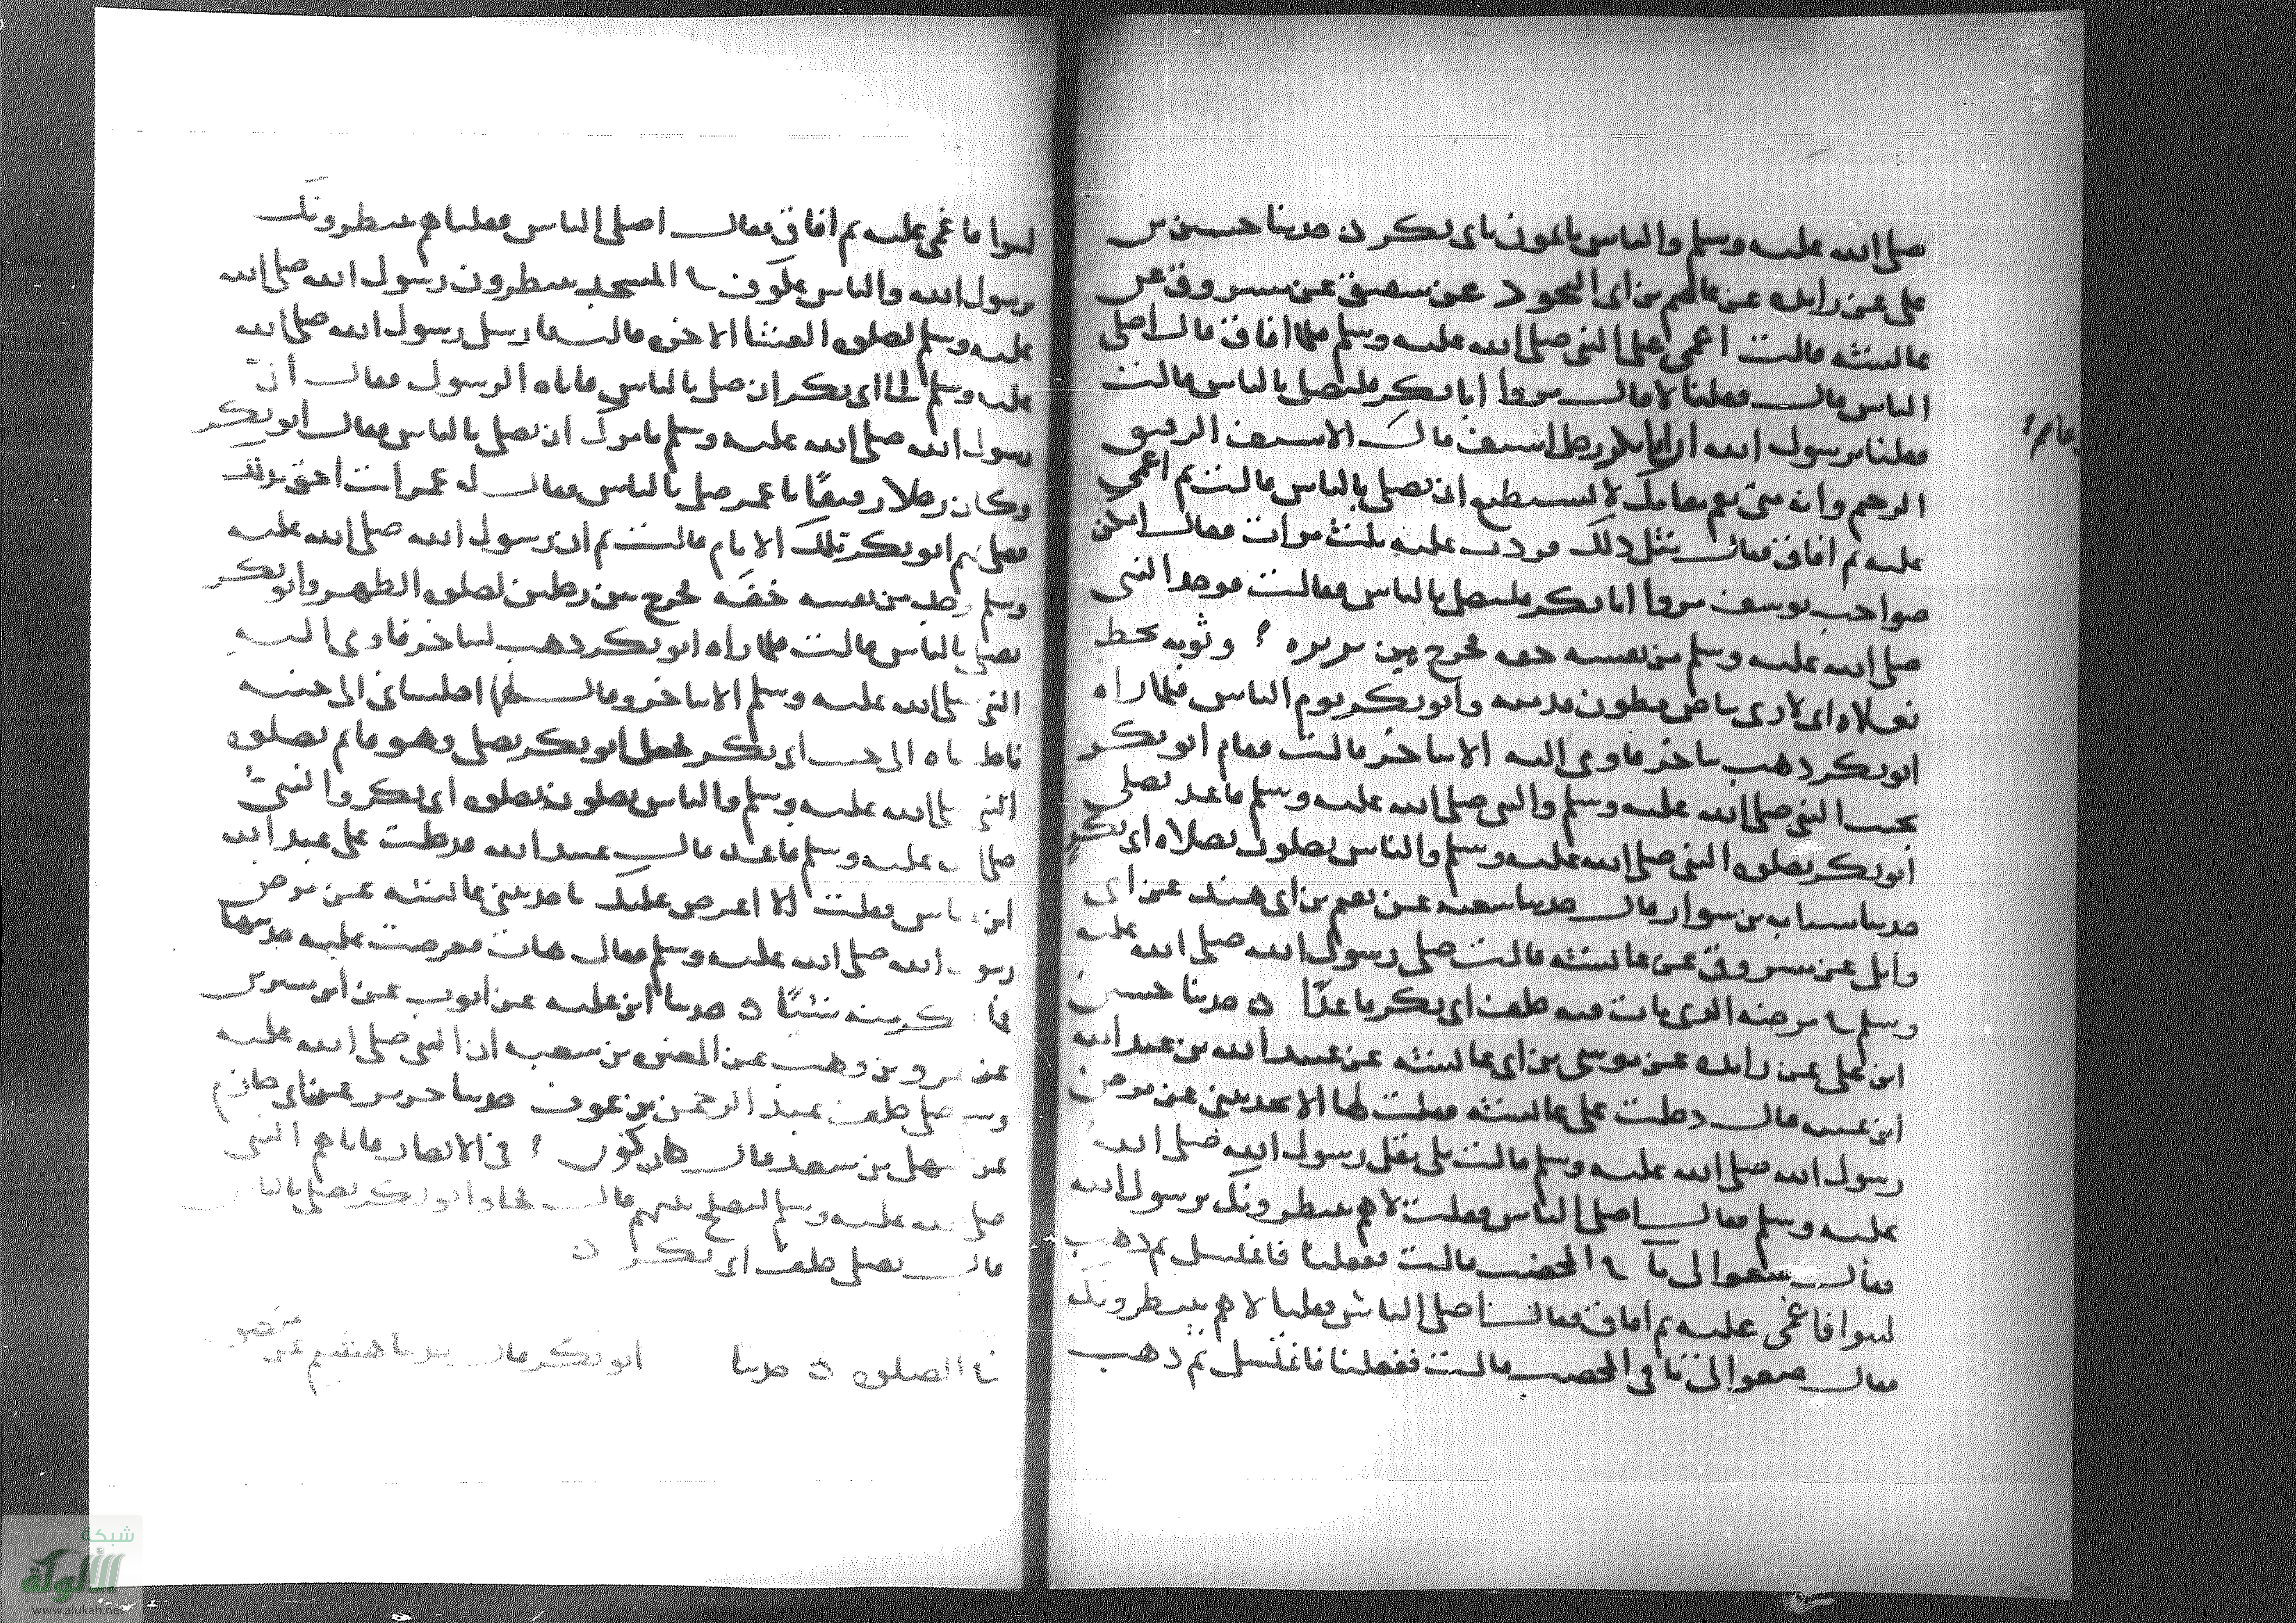 صلى الله عليه وسلم والناس ياتمون بابى بكر ن حدثنا حسين بن
على عن زايده عن عاصم بن ابى النجود عن شقيق عن مسروق عن
عائشه قالت اغمى على النبى صلى الله عليه وسلم فلما افاق قال اصلى
الناس قال فقلنا لا قال مروا ابا بكر فليصل بالناس قالت
فقلنا يرسول الله ان ابا بكر رجل اسيف قال الاسيف الرقيق
الرحيم وانه متى يقم مقامك لا يستطيع ان يصلى بالناس قالت ثم اغمى
عليه ثم افاق فقال مثل ذلك فردت عليه ثلث مرات فقال انكن
صواحب يوسف مروا ابا بكر فليصل بالناس فقالت فوجد النبى
صلى الله عليه وسلم من نفسه خفه فخرج بين بريره ؟ وثوبه تخط
نعلاه انى لارى بياض بطون قدميه وابو بكر يوم الناس فلما راه
ابو بكر ذهب يتاخر فاومى اليه الا يتاخر قالت فقام ابو بكر
بجنب النبى صلى الله عليه وسلم والنبى صلى الله عليه وسلم قاعد يصلى
ابو بكر بصلوه النبى صلى الله عليه وسلم والناس يصلون بصلاه ابى بكر
حدثنا شبابه بن سوار قال حدثنا شعبه عن نعيم بن ابى هند عن ابى
وايل عن مسروق عن عائشه قالت صلى رسول الله صلى الله عليه
وسلم فى مرضه الذى مات فيه خلف ابى بكر قاعدًا ن حدثنا حسين
ابن على عن زايده عن موسى بن ابى عائشه عن عبيد الله بن عبد الله
ابن عتبه قال دخلت على عائشه فقلت لها الا تحدثينى عن مرض
رسول الله صلى الله عليه وسلم قالت بلى ثقل رسول الله صلى الله
عليه وسلم فقال اصلى الناس فقلت لا هم ينتظرونك يرسول الله
فقال ضعوا لى ما فى المخضب قالت ففعلنا فاغتسل ثم ذهب
لينوا فاغمى عليه ثم افاق فقال اصلى الناس فقلنا لا هم ينتظرونك
فقال ضعوا لى ما فى المخضب قالت ففعلنا فاغتسل ثم ذهب
عاصم ؟
لينوا فاغمى عليه ثم افاق فقال اصلى الناس فقلنا هم ينتظرونك
يرسول الله والناس عكوف فى المسجد ينتظرون رسول الله صلى الله
عليه وسلم لصلوه العشا الاخره قالت فارسل رسول الله صلى الله
عليه وسلم الى ابى بكر ان صل بالناس فاتاه الرسول فقال ان
رسول الله صلى الله عليه وسلم يامرك ان تصلى بالناس فقال ابو بكر
وكان رجلا رقيقًا يا عمر صل بالناس فقال له عمر انت احق بذلك
فصلى بهم ابو بكر تلك الايام قالت ثم ان رسول الله صلى الله عليه
وسلم وجد من نفسه خفه فخرج بين رجلين لصلوه الظهر وابو بكر
يصلى بالناس قالت فلما راه ابو بكر ذهب ليتاخر فاومى اليه
النبى صلى الله عليه وسلم الا يتاخر وقال لهما اجلسانى الى جنبه
فاجلساه الى جنب ابى بكر فجعل ابو بكر يصلى وهو قايم بصلوه
النبى صلى الله عليه وسلم والناس يصلون بصلوه ابى بكر والنبى
صلى الله عليه وسلم قاعد قال عبيد الله فدخلت على عبد الله
ابن عباس فقلت الا اعرض عليك ما حدثتنى عائشه عن مرض
رسول الله صلى الله عليه وسلم فقال هات فعرضت عليه حديثها
فما انكر منه شيئًا ن حدثنا ابن عليه عن ايوب عن ابن سيرين
عن عمرو بن وهب عن المغيره بن شعبه ان النبى صلى الله عليه
وسلم صلى خلف عبد الرحمن بن عوف حدثنا جرير عن ابى حازم
عن سهل بن سعد قال كان كون ؟ فى الانصار فاتاهم النبى
صلى الله عليه وسلم ليصلح بينهم قال فجاء وابو بكر يصلى بالناس
قال يصلى خلف ابى بكر ن
فى الصلوه ن حدثنا ابو بكر قال حدثنا هشيم عن منصور